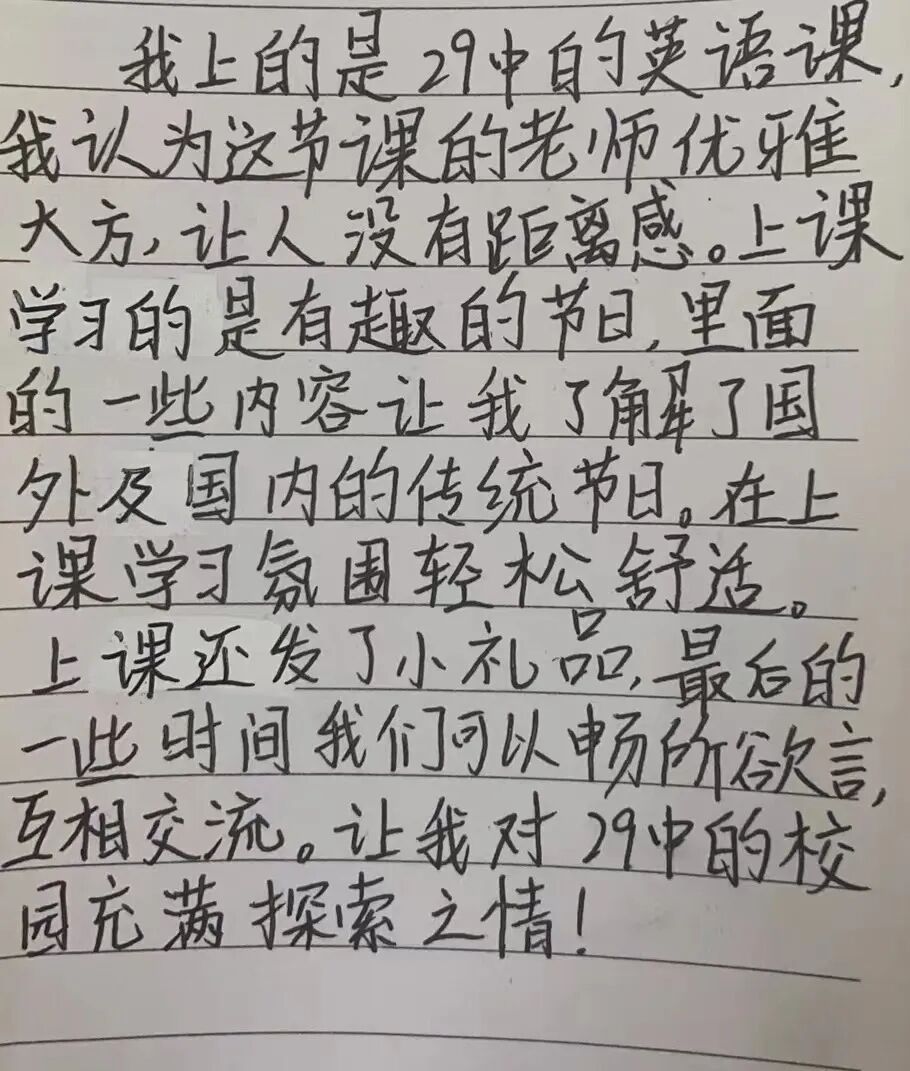 我上的是29中的英语课,
我认为这节课的老师优雅
大方,让人没有距离感。上课
学习的是有趣的节日,里面
的一些内容让我了解了国
外及国内的传统节日。在上
课学习氛围轻松舒活。
上课还发了小礼品,最后的
一些时间我们可以畅所欲言,
互相交流。让我对29中的校
园充满探索之情!